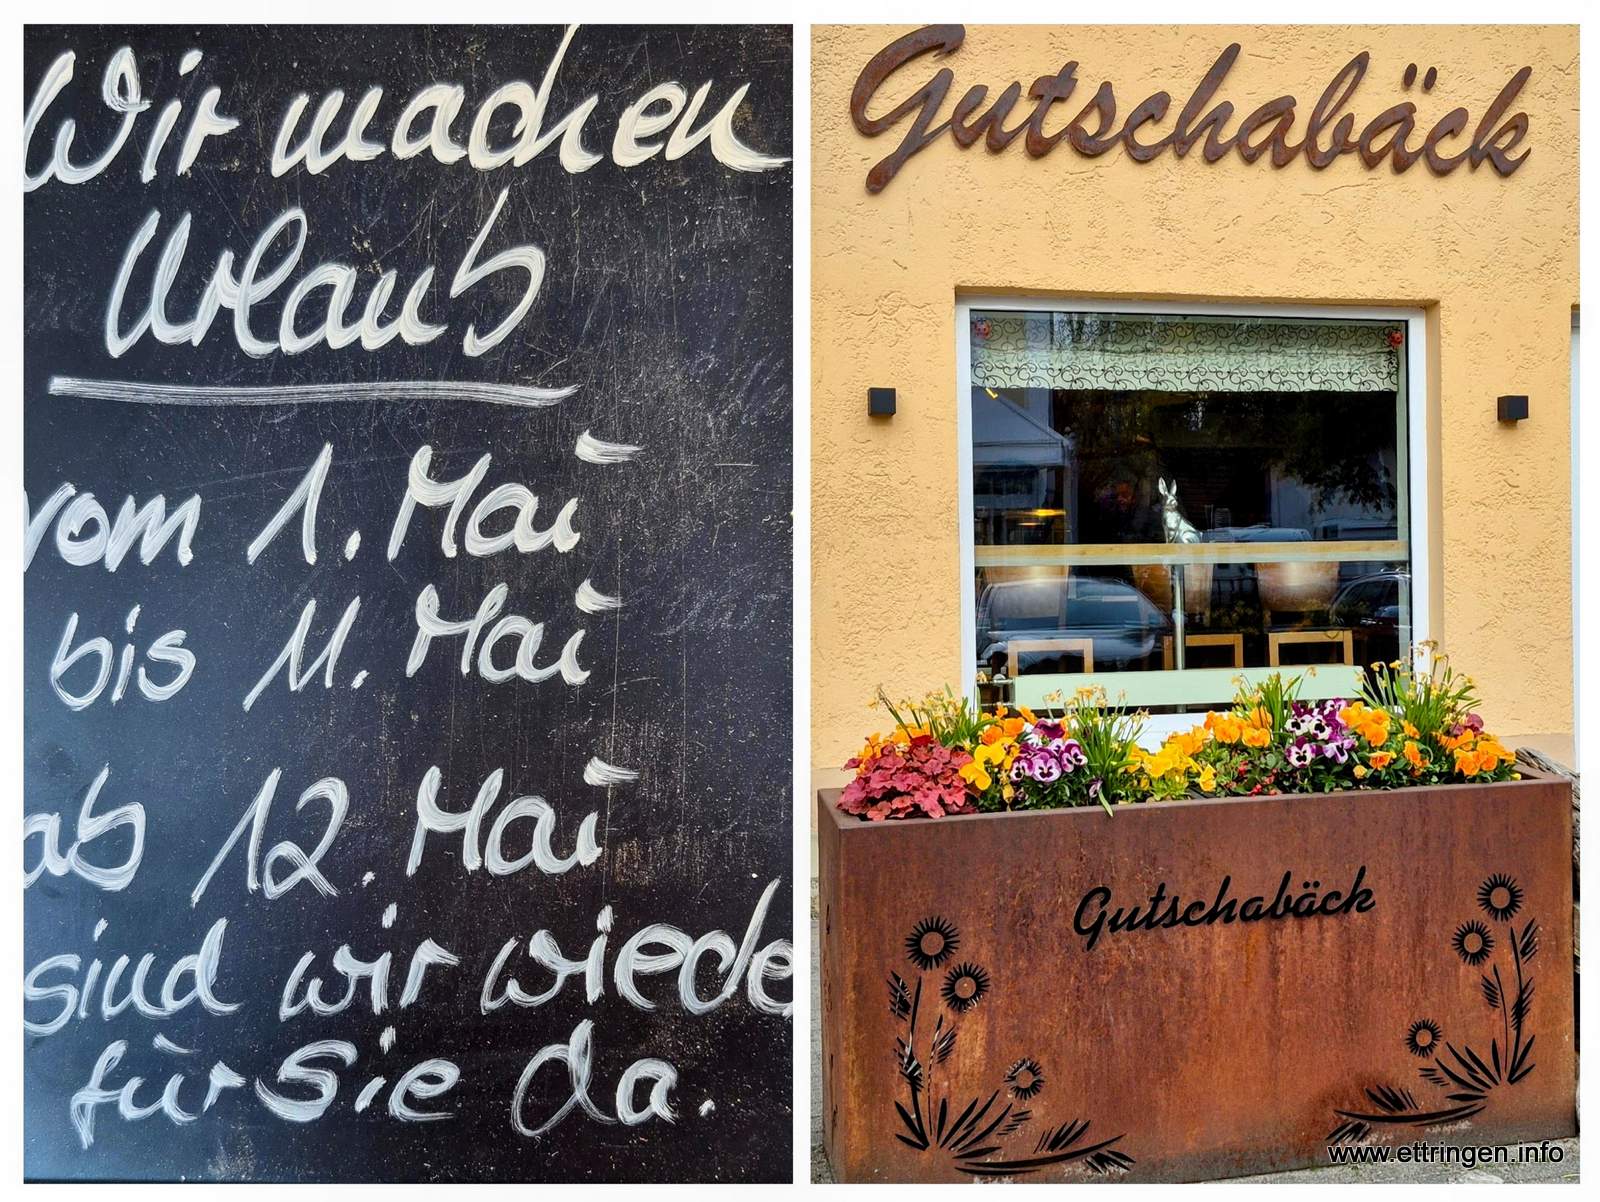 Wir machen
Urlaub
vom 1. Mai
bis 11. Mai
ab 12. Mai
sind wir wiede
für Sie da.
Gutschabäck
Gutschabäck
www.ettringen.info